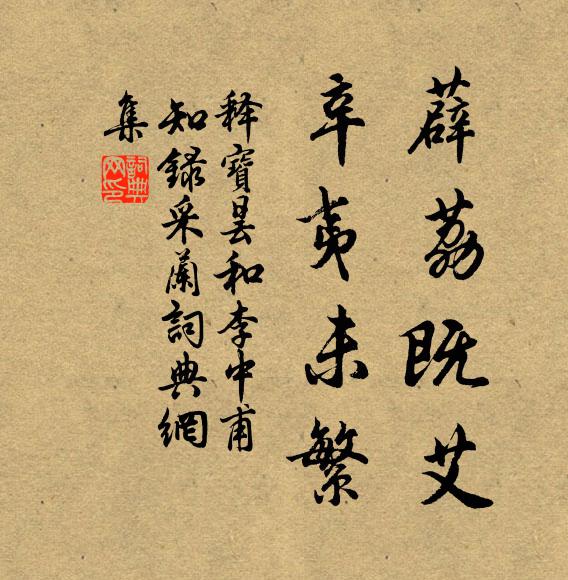 薜荔既艾
辛夷未繁
释寶曇和李中甫
知録采蘭詞典網
集
詞典網印